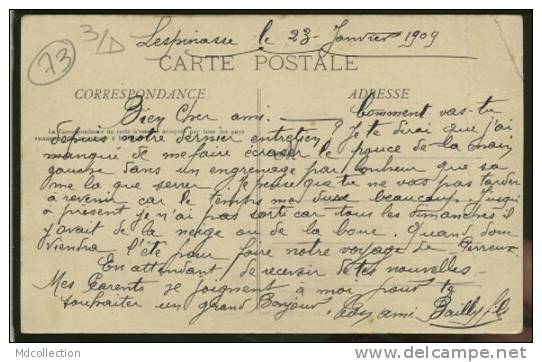 73
3/D
Lespinasse le 23 Janvier 1909
CARTE POSTALE
CORRESPONDANCE ADRESSE
Bien cher ami. Comment vas-tu
depuis notre dernier entretien ? Je te dirai que j'ai
manqué de me faire écraser le pouce de la main
gauche dans un engrenage par bonheur que sa
me la que serrer. Je pense que tu ne vas pas tarder
à revenir car le temps me dure beaucoup. Jusqu'
à présent je n'ai pas sorti car tous les dimanches il
y avait de la neige ou de la boue. Quand donc
viendra l'été pour faire notre voyage de Perreux.
En attendant de recevoir de tes nouvelles
Mes Parents se joignent à moi pour te
souhaiter un grand Bonjour. ami Bailly fils
MDcollection
http://www.delcampe.net